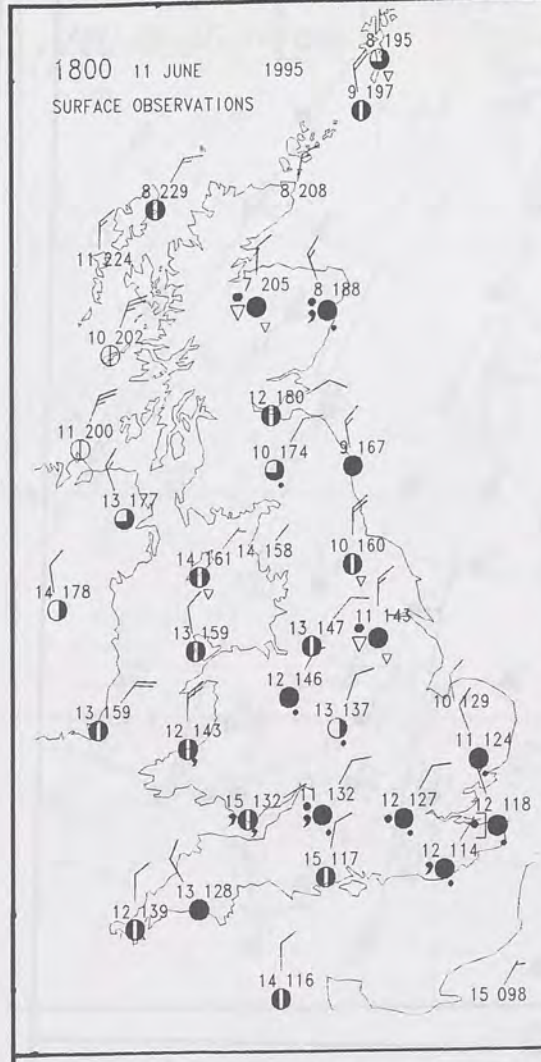 8 195
1800 11 JUNE 1995
9 197
SURFACE OBSERVATIONS
8 229
8 208
11 224
7 205
8 188
10 202
12 180
11 200
10 174
9 167
13 177
14 161
14 158
10 160
14 178
13 159
13 147
11 143
12 146
13 137
10 129
13 159
12 143
11 124
15 132
11 132
12 127
12 118
12 114
15 117
13 128
12 139
14 116
15 098